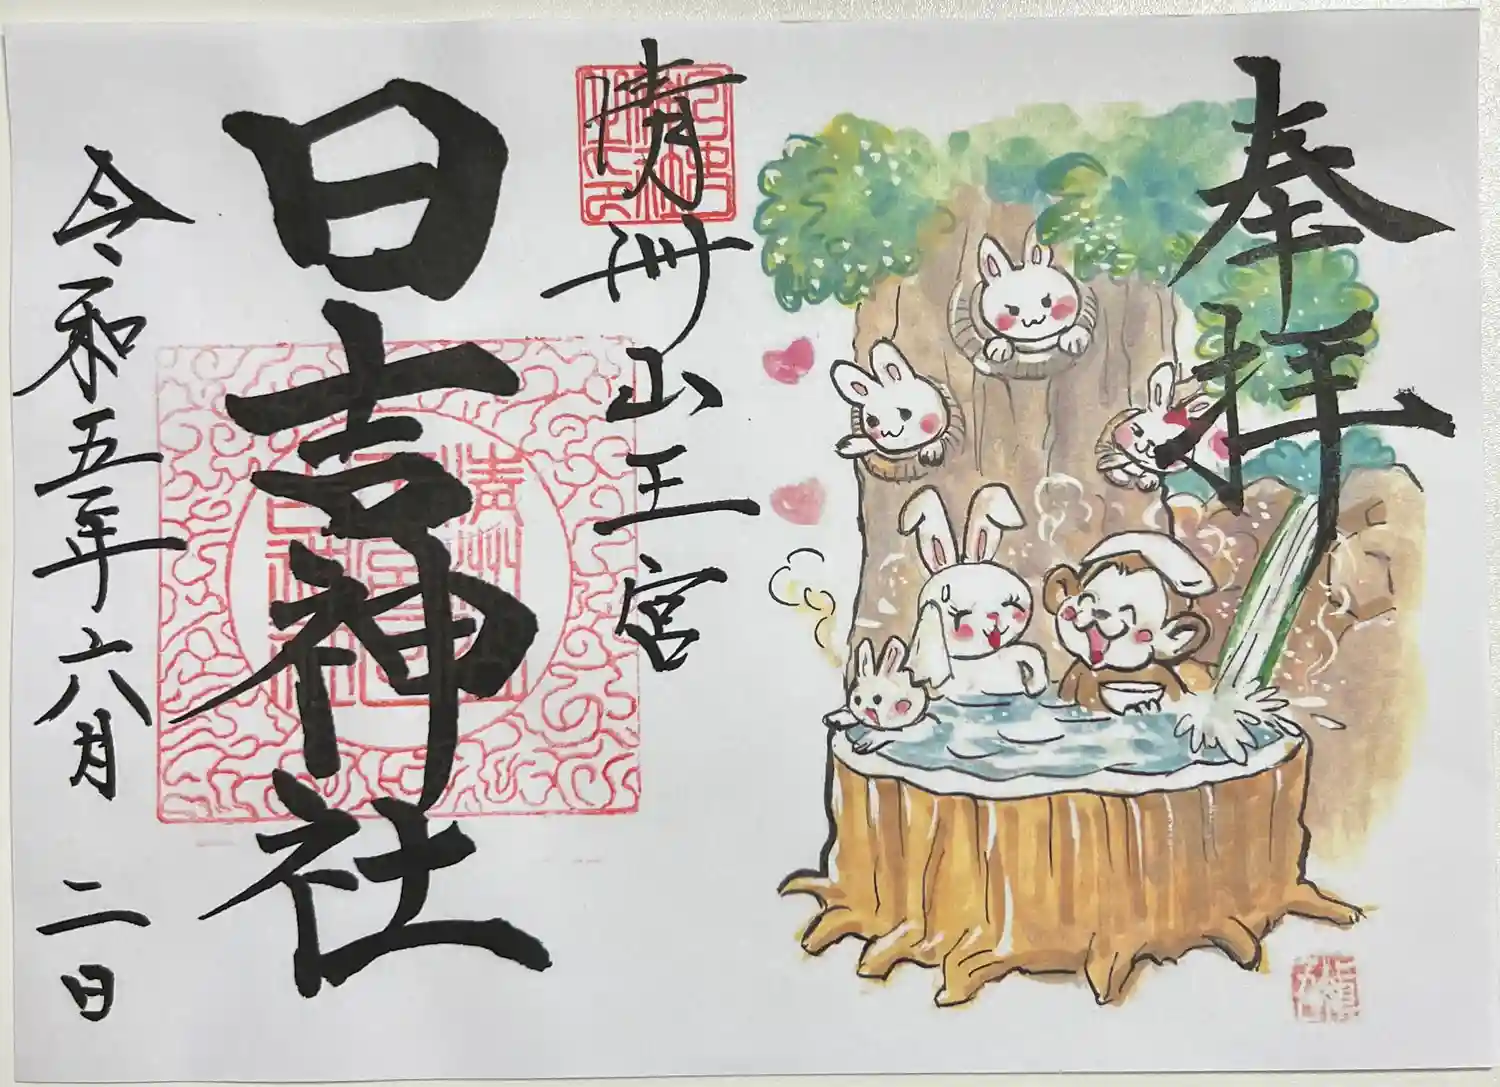 奉拝
清州山王宮
日吉神社
令和五年六月二日